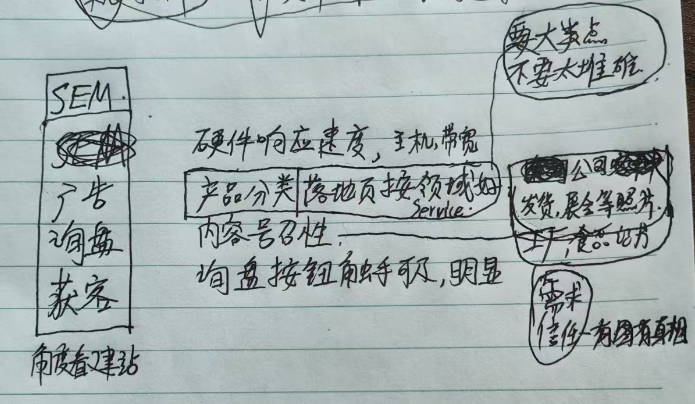 要大类点
不要太堆砌
SEM
硬件响应速度,主机,带宽
广告
询盘
获客
角度看建站
产品分类 落地页按领域如
Service.
内容号召性.
询盘按钮触手可及,明显
公司
发货,展会等照片.
工厂,
需求
信任-有图有真相